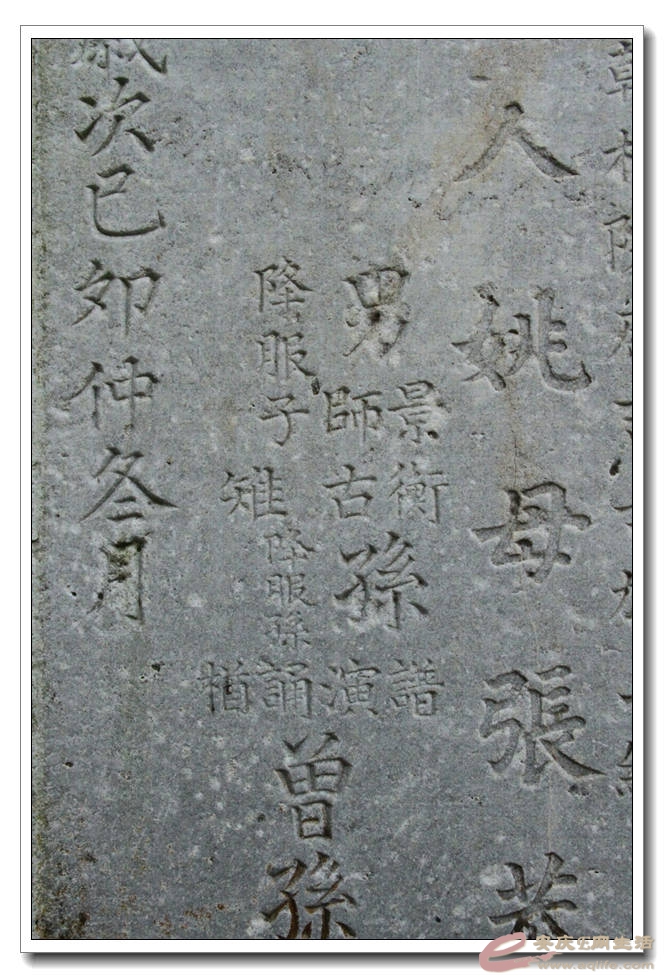 人姚母張
男
景衡
師古
孫
譜
演
降服子
雉
降服孫
誦
楯
曾孫
歲次已卯仲冬月
安庆E网生活
www.aqlife.com